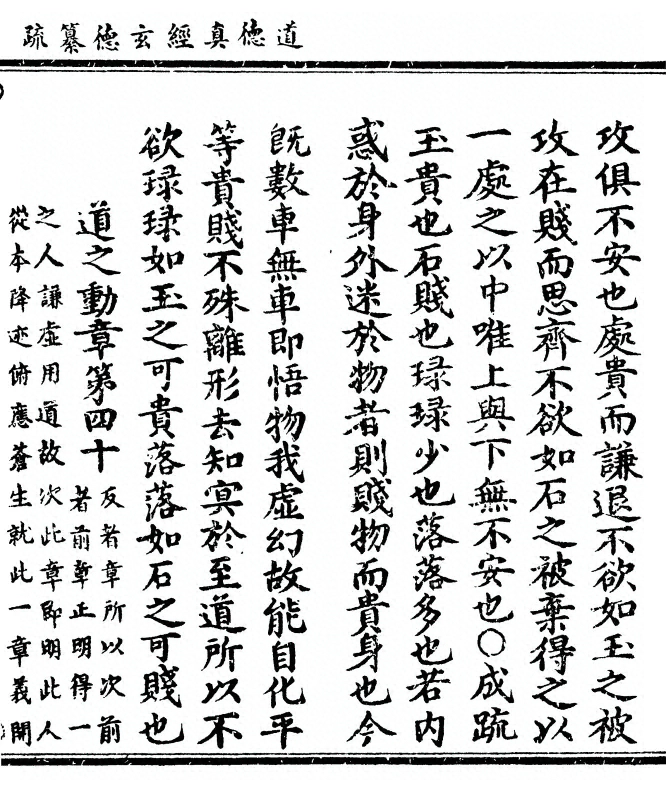 道德真經玄德纂疏
攻俱不安也處貴而謙退不欲如玉之被
攻在賤而思齊不欲如石之被棄得之以
一處之以中唯上與下無不安也〇成疏
玉貴也石賤也琭琭少也落落多也若内
惑於身外迷於物者則賤物而貴身也今
既數車無車即悟物我虛幻故能自化平
等貴賤不殊離形去知㝠於至道所以不
欲琭琭如玉之可貴落落如石之可賤也
道之動章第四十
反者章所以次前
者前章正明得一
之人謙虛用道故次此章即明此人
從本降迹俯應蒼生就此一章義開